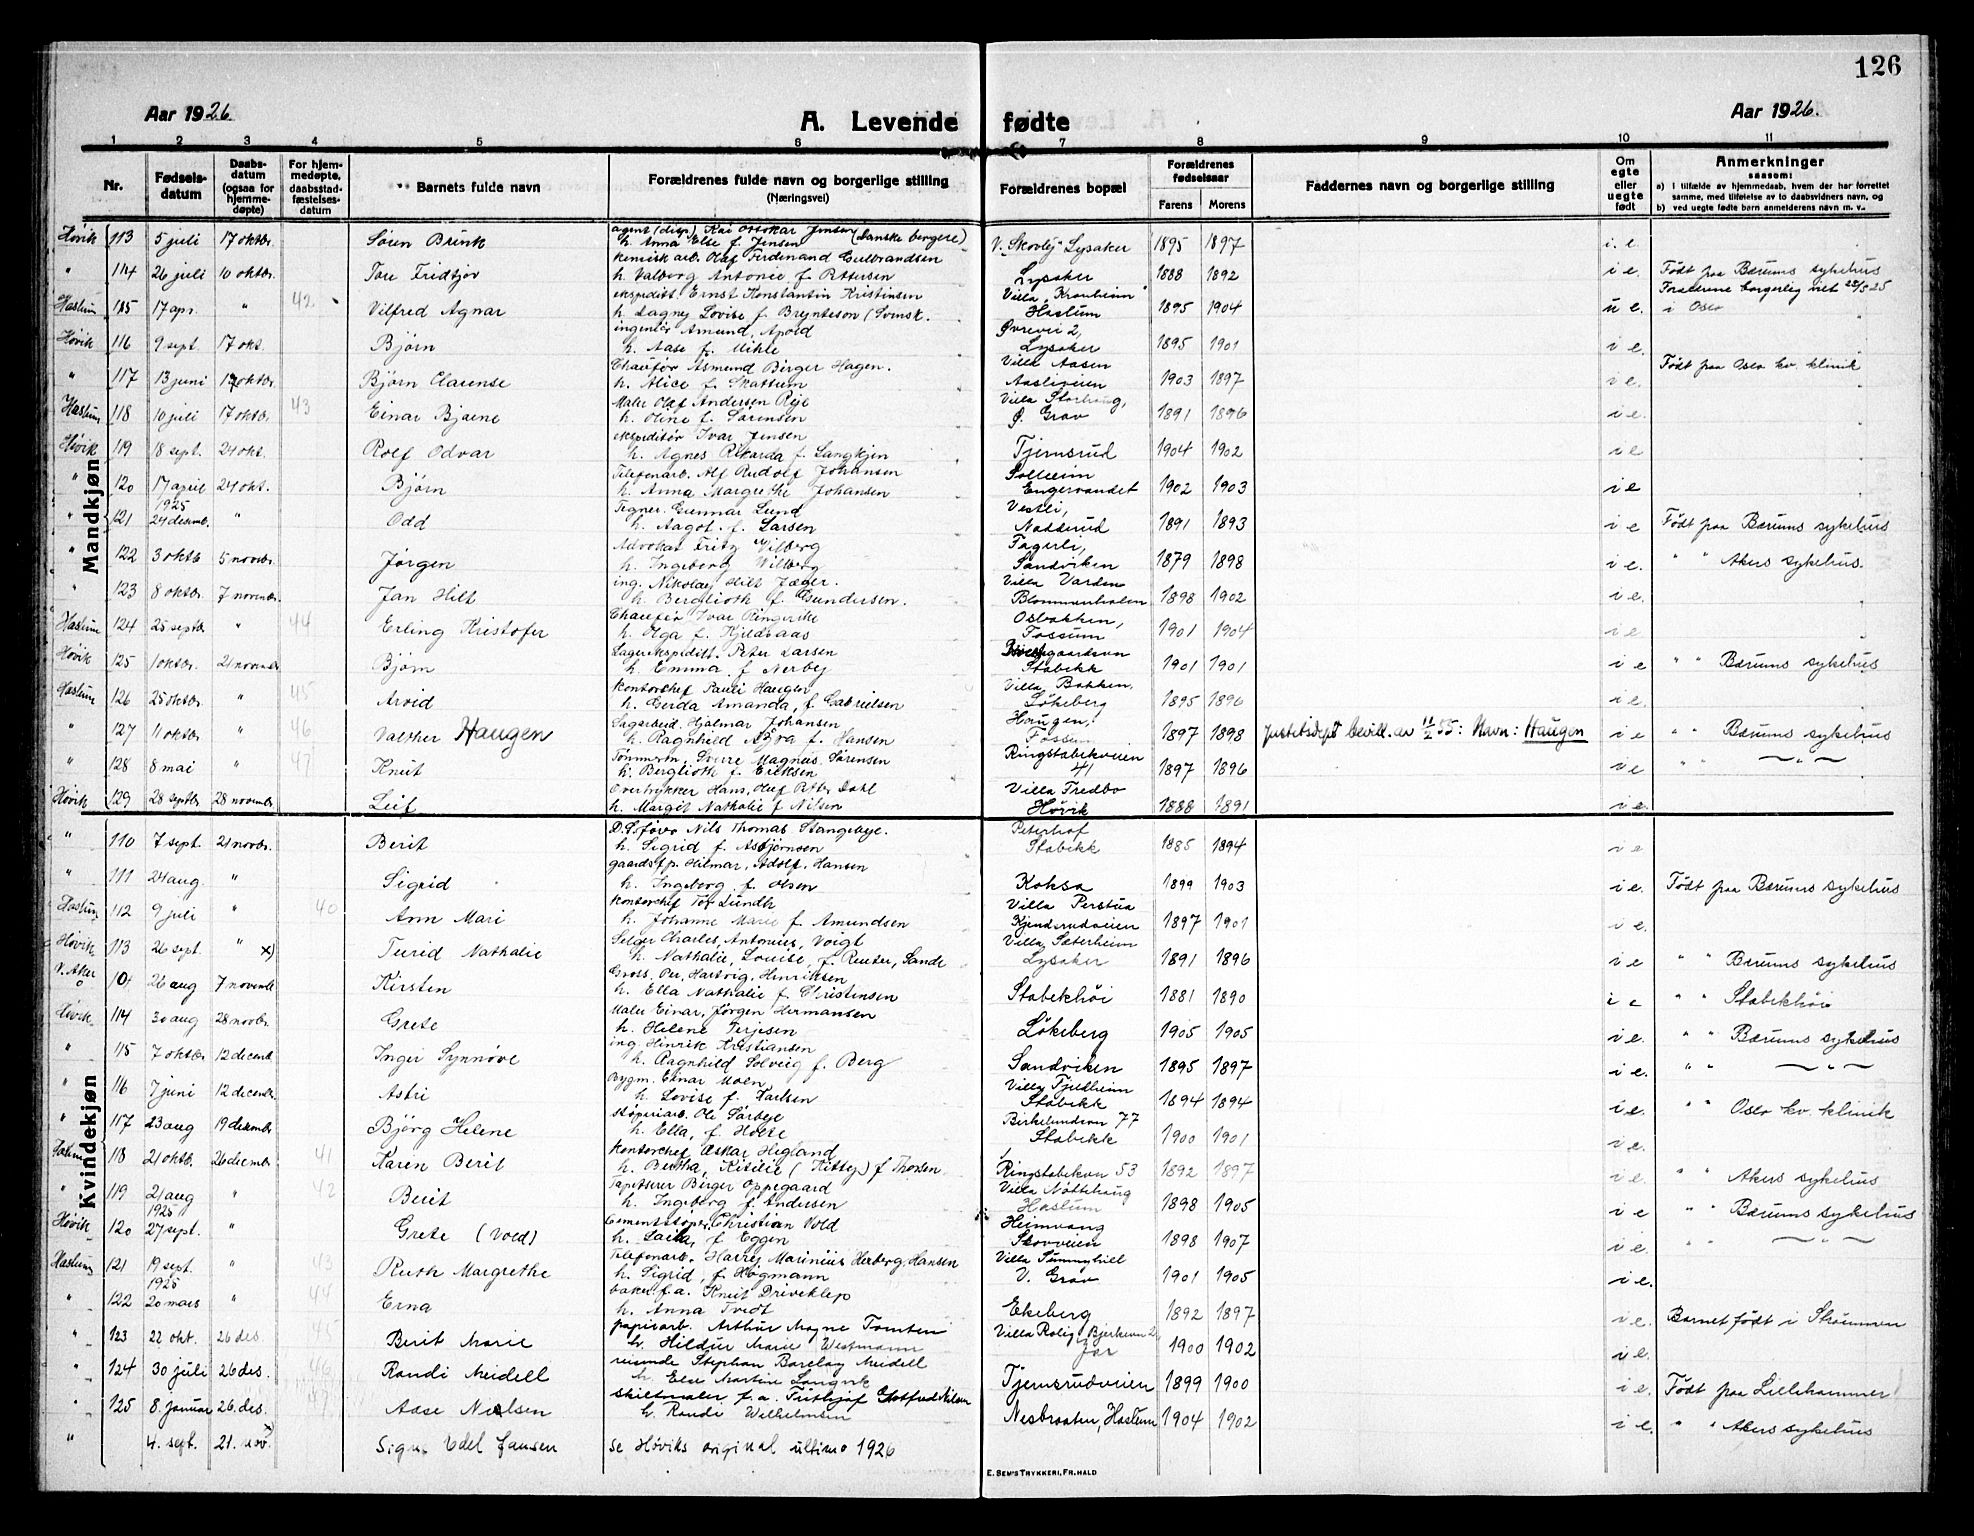 126
Aar 1926. A. Levende fødte Aar 1926.
1 2 3 4 5 6 7 8 9 10 11
Nr. Fødsels-datum Daabs-datum (ogsaa for hjemme-døpte) For hjem-medøpte, daabsstad-fæstelses-datum Barnets fulde navn Forældrenes fulde navn og borgerlige stilling (Næringsvei) Forældrenes bopæl Forældrenes fødselsaar Farens Morens Faddernes navn og borgerlige stilling Om egte eller uegte født Anmerkninger saasom:
a) i tilfælde av hjemmedaab, hvem der har forrettet samme, med tilføielse av to daabsvidners navn, og
b) ved uegte fødte børn anmelderens navn m. v.
Mandkjøn
Høvik 113 5 juli 17 oktbr. Søren Brink agent (disp) Kai Ottokar Jensen (danske borgere)
h. Anna Else f. Jensen V. "Skovlej" Lysaker 1895 1897 i. e
" 114 26 juli 10 oktbr. Tore Fridtjov kemisk arb. Olaf Ferdinand Gulbrandsen
h. Valborg Antonie f. Pettersen Lysaker 1888 1892 i e. Født paa Bærums sykehus
Haslum 115 17 apr. " 42 Vilfred Agnar ekspeditt. Ernst Konstantin Kristinsen
h. Dagny Lovise f. Brynteson (Svensk. Villa "Kronheim" Haslum 1895 1904 u e. Forældrene borgerlig viet 28/3 25 i Oslo
Høvik 116 9 sept. 17 okt. Bjørn ingeniør Amund, Apold
h. Aase f. Mihle Øvrevei 2, Lysaker 1895 1901 i e.
" 117 13 juni 17 oktbr Bjørn Clarense Chaufør Asmund Birger Hagen.
h. Alice f. Skattum Villa Aasen Aasliveien 1903 1897 i e. Født paa Oslo kv. klinik
Haslum 118 10 juli 17 oktbr. 43 Einar Bjarne Maler Olaf Andersen Reje
h. Oline f. Sørensen Villa Storhaug, Ø. Grav 1891 1896 i e.
Høvik 119 18 sept. 24 okt. Rolf Odvar ekspeditør Ivar Jensen
h. Agnes Rikarda f. Langkjen Tjernsrud 1904 1902 i e
" 120 17 april 24 okt. Bjørn Telefonarb. Alf Rudolf Johansen
h. Anna Margrethe Johansen Solheim Engervandet 1902 1903 i e
" 121 1925 24 desemb. " Odd Tegner. Gunnar Lund
h. Aagot. f. Larsen Vestli, Nadderud 1891 1893 i e Født paa Bærums sykehus
" 122 3 oktb 5 novbr. Jørgen Advokat Fritz Wilberg
h. Ingeborg Wilberg Fagerli, Sandviken 1879 1898 i e. " " Akers sykehus.
" 123 8 oktbr. 7 novembr. Jan Hilt ing. Nikolay Hilt Jæger.
h. Berglioth f. Gundersen. Villa Varden Blommenholm 1898 1902 i e.
Haslum 124 25 septbr " 44 Erling Kristofer Chaufør Ivar Ringerike
h. Olga f. Kjeldsaas Osbakken, Fossum 1901 1904 i e.
Høvik 125 1 oktbr. 21 novembr Bjørn Lagerekspeditt. Peter Larsen
h. Emma f. Nerbej Stabekk 1901 1901 i e " " Bærums sykehus
Haslum 126 25 oktbr. " 45 Arvid Kontorchef Pauli Haugler
h. Gerda Amanda, f. Gabrielsen Villa Bakken, Løkeberg 1895 1896 i e.
" 127 11 oktbr. " 46 Valther Haugen Sagarbeid. Hjalmar Johansen
h. Ragnhild Alfra f. Hansen Haugen, Fossum 1897 1898 Justitsdept bevill. av 11/2 55: Navn: Haugen i e " " Bærums sykehus
" 128 8 mai " 47 Knut Tømmerm. Sverre Magnus Sørensen
h. Berglioth f. Eriksen Ringstabekveien 41 1897 1896 i e " " — " —
Høvik 129 28 septbr 28 novembr Leif Overtrykker Hans, Oluf Petter Dahl
h. Margit Nathalie f. Nilsen Villa Fredbo Høvik 1888 1891 i e.
Kvindekjøn
" 110 7 sept. 21 novbr. Berit D.S. fører Nils Thomas Stangebye.
h. Sigrid f. Asbjørnsen Peterhof Stabekk 1885 1894 i e
" 111 24 aug. " Sigrid gaardsfp. Hilmar, Adolf. Hansen
h. Ingeborg f. Olsen Koksa 1899 1903 i e. Født paa Bærums sykehus
Haslum 112 9 juli " 40 Ann Mari Kontorchef Tor Lundh
h. Johanne Marie f. Amundsen Villa Perstua Kjendsrudveien 1897 1901 i e.
Høvik 113 26 sept. " x) Turid Nathalie Selger Charles, Antonius, Voigt
h. Nathalie, Louise, f. Reuter, Sande Villa, Sæterheim Lysaker 1891 1896 i e " " Bærums sykehus
V. Aker 10 26 aug 7 novemb Kirsten Gross. Per, Hartvig, Henriksen
h. Ella Nathalie f. Christensen Stabekhøi 1881 1890 i e " " Stabekhøi
Høvik 114 30 aug 28 novbr. Grete Maler Einar, Jørgen Hermansen
h. Helene Terjesen Løkeberg 1905 1905 i e. " " Bærums sykehus
" 115 7 oktbr 12 decemb Inger Synnøve ing Henrik Kristiansen
h. Ragnhild Solveig f. Berg Sandviken 1895 1897 i e. " " — " —
" 116 7 juni 12 decembr. Astri Bygm. Einar Moen
h. Lovise f. Karlsen Villa Fjeldheim Stabekk 1894 1894 i e. " " Oslo kv. klinik
" 117 23 aug 19 desembr Bjørg Helene støperiarb. Ole Sørbye
h. Ella, f. Hvere Birkelundsvn 77 Stabekk 1900 1901 i e.
Haslum 118 21 oktb. 26 decembr 41 Karen Berit Kontorchef Oskar Hegland
h. Bertha, Kitilie (Kitty) f Thorsen Ringstabekvn 53 1892 1897 i e. " " Akers sykehus
" 119 21 aug " 42 Berit Tapetserer Birger Oppegaard
h. Ingeborg f. Andersen Villa Nøttehaug Haslum 1898 1905 i e " " Bærums sykehus
Høvik 120 1925 27 sept. " Grete (Vold) Cementstøper, Christian Vold
h. Laila, f. Eggen Heimvang Skovveien 1898 1907 i e. " " — " —
Haslum 121 19 sept. " 43 Ruth Margrethe Telefonarb. Harrej Marinius Herberg, Hansen
h. Sigrid, f. Høgmann Villa Sunnyhill V. Grav 1901 1905 i e.
" 122 1925 20 mars " 44 Erna baker f. a. Knut Driveklep
h. Anna Tvedt Ekeberg 1892 1897 i e. Barnet født i Strømmen
" 123 22 okt. 26 des. 45 Berit Marie papirarb. Arthur Magne Tomten
h. Hildur Marie Westmann Villa Rolig, Bjerkevn 2 Jar 1900 1902 i e.
" 124 30 juli 26 des. 46 Randi Meidell reisende Stephan Barclay Meidell
h. Else Martin Langvik Tjernsrudveien 1899 1900 i e. Født paa Lillehammer
" 125 8. januar 26. des. 47 Aase Nielsen skiltmaler f. a. Frithjof Gottfred Nilsen
h. Randi Wilhelmsen Nesbraaten, Haslum 1904 1902 i e. " " Akers sykehus
" 4. sept. 21. nov. Signe Edel Jansen se Høviks original ultimo 1926
E. SEM'S TRYKKERI, FR.HALD